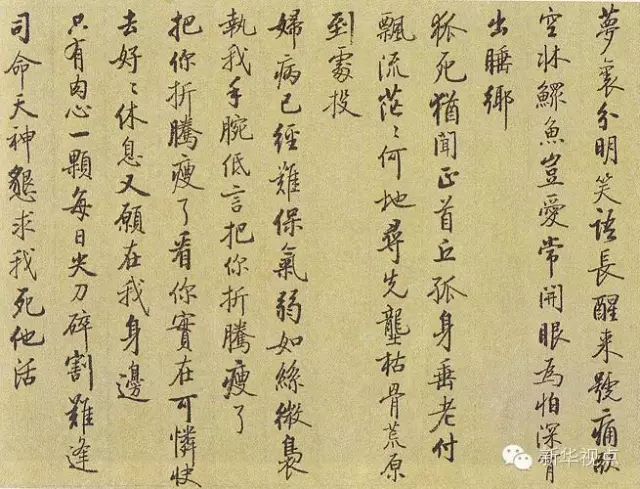 夢裏分明笑語長醒来號痛臥
空牀鰥魚豈愛常開眼為怕深宵
出睡鄉
狐死猶聞正首丘孤身垂老付
飄流茫〻何地尋先壟枯骨荒原
到處投
婦病已經難保氣弱如絲微裊
執我手腕低言把你折騰瘦了
把你折騰瘦了看你實在可憐快
去好〻休息又願在我身邊
只有肉心一顆每日尖刀碎割難逢
司命天神懇求我死他活
新华视点